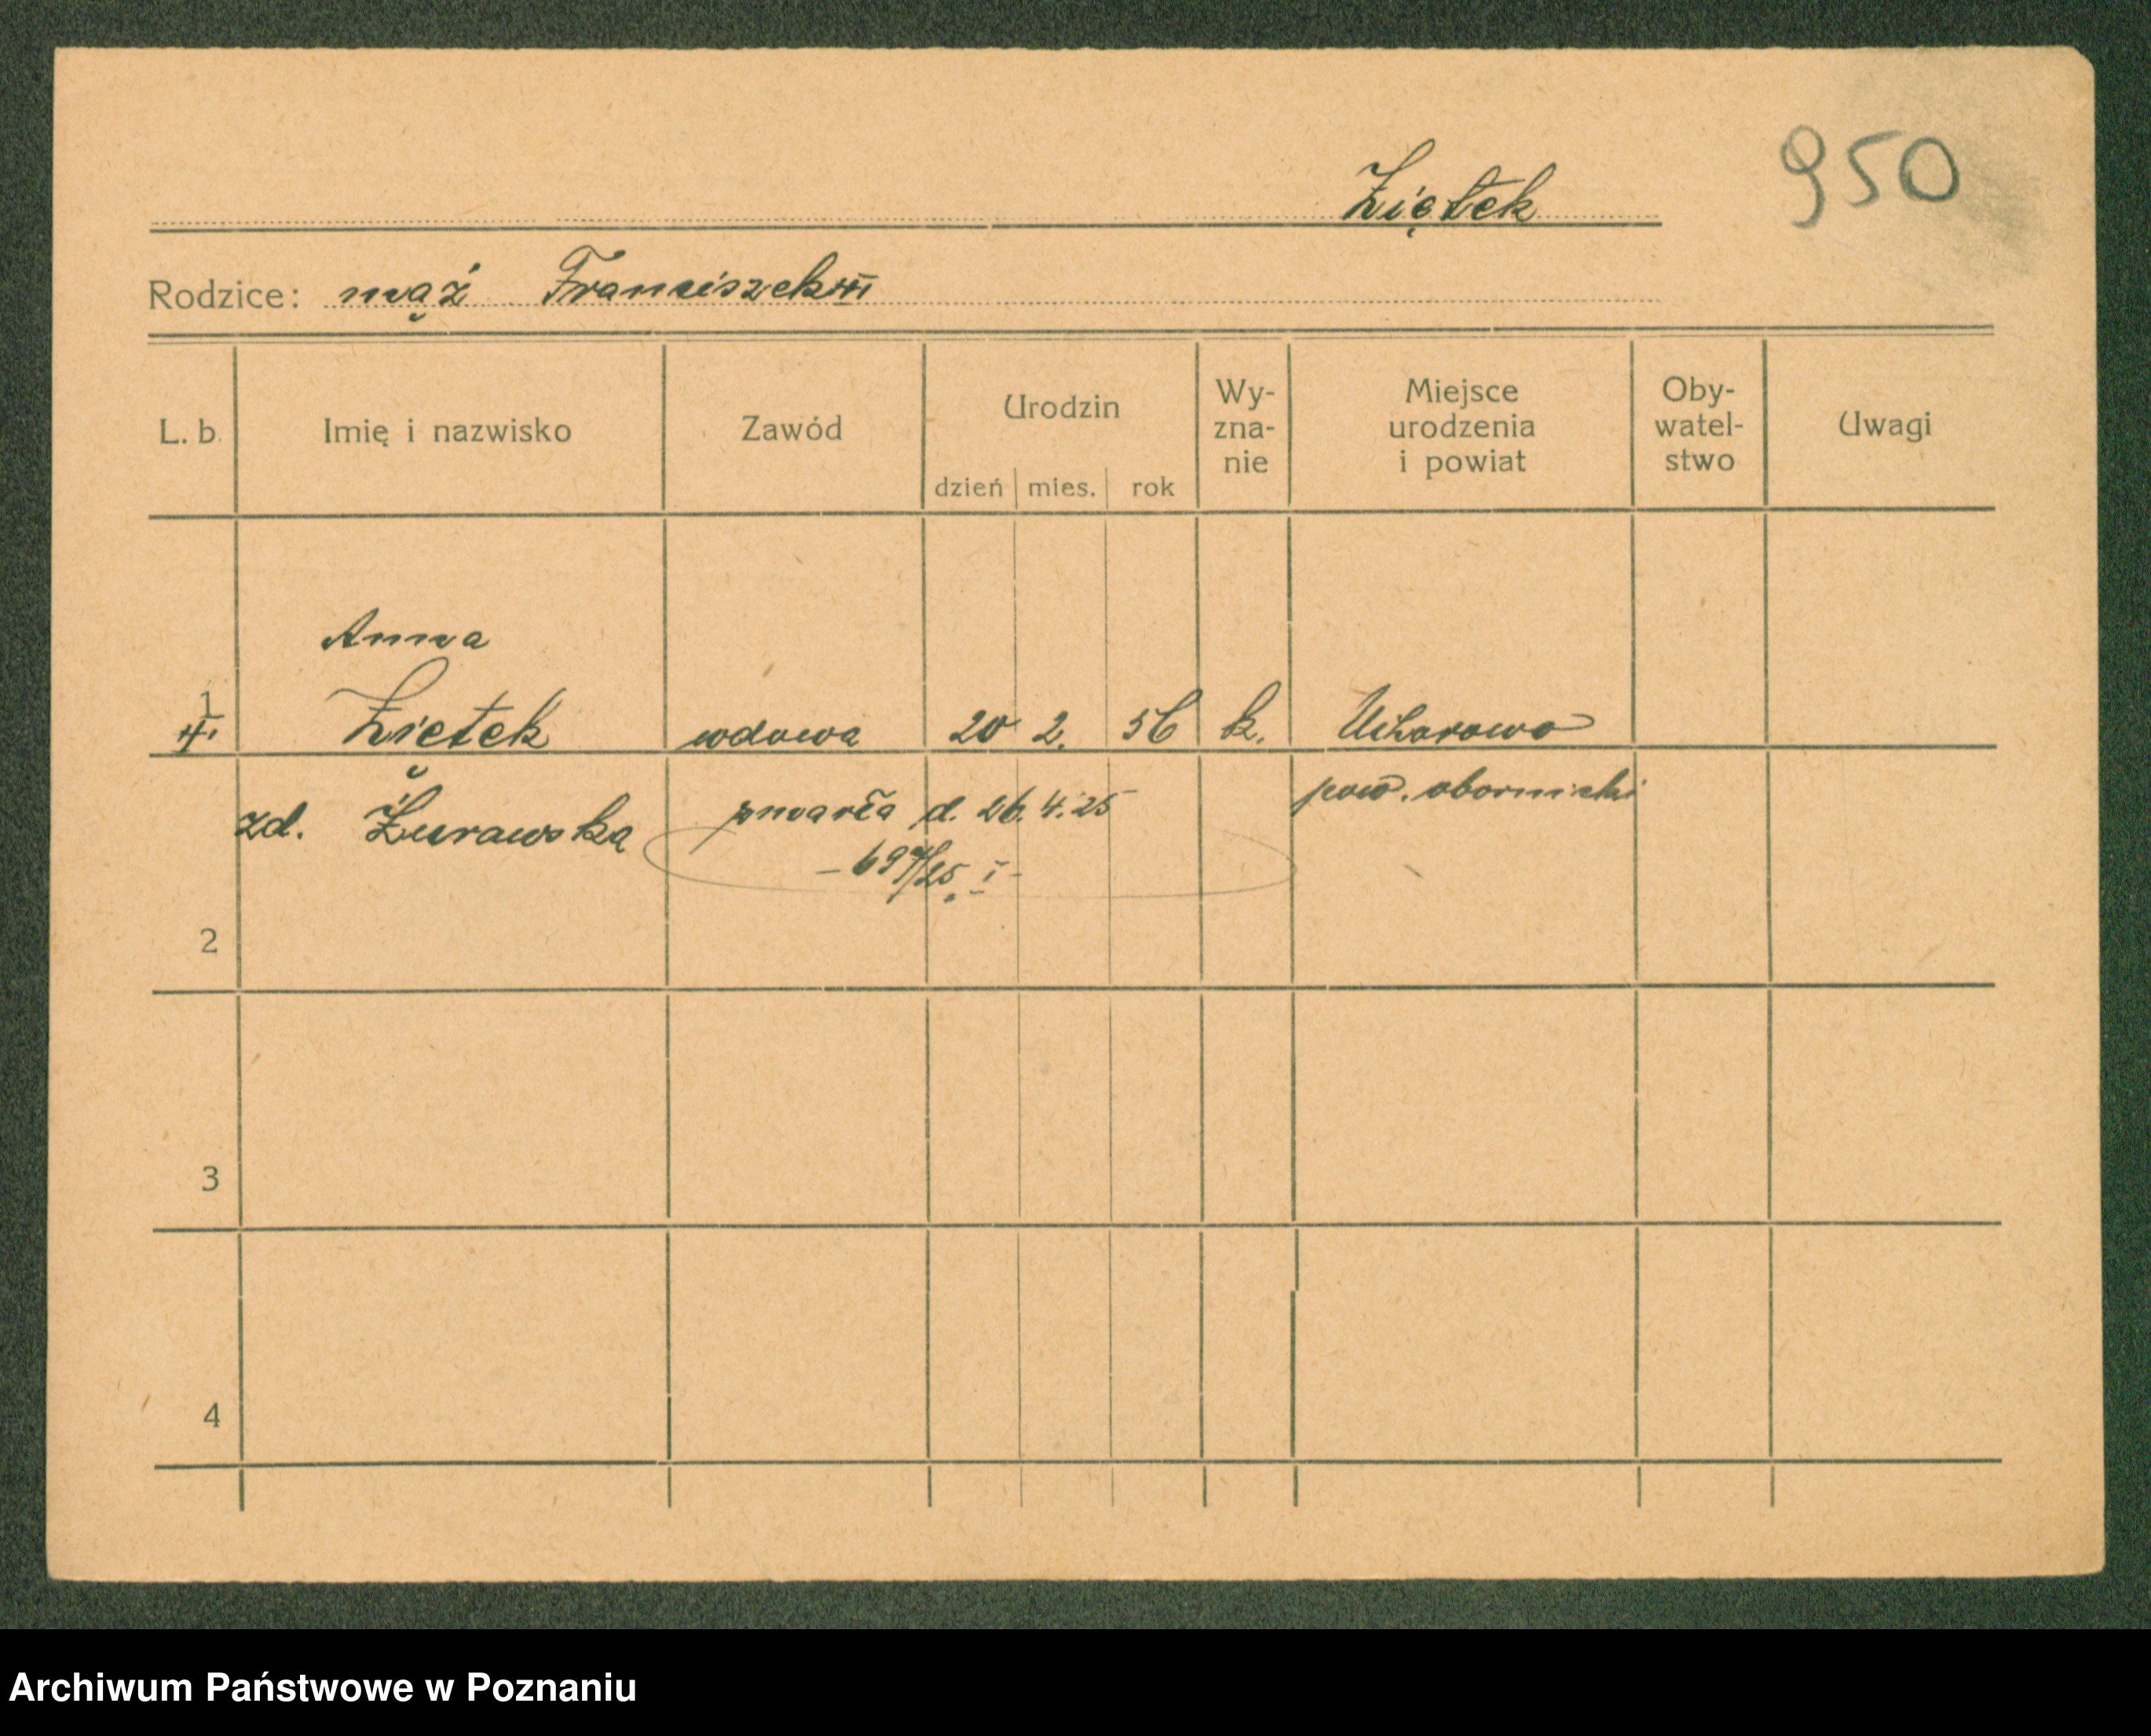 Ziętek
950
Rodzice: mąż Franciszek
L. b. Imię i nazwisko Zawód Urodzin dzień mies. rok Wy-zna-nie Miejsce urodzenia i powiat Oby-watel-stwo Uwagi
Anna
1 Ziętek wdowa 20 2. 56 k.
zd. Żurawska zmarła d. 26.4.25 pow. obornicki
2
3
4
Archiwum Państwowe w Poznaniu